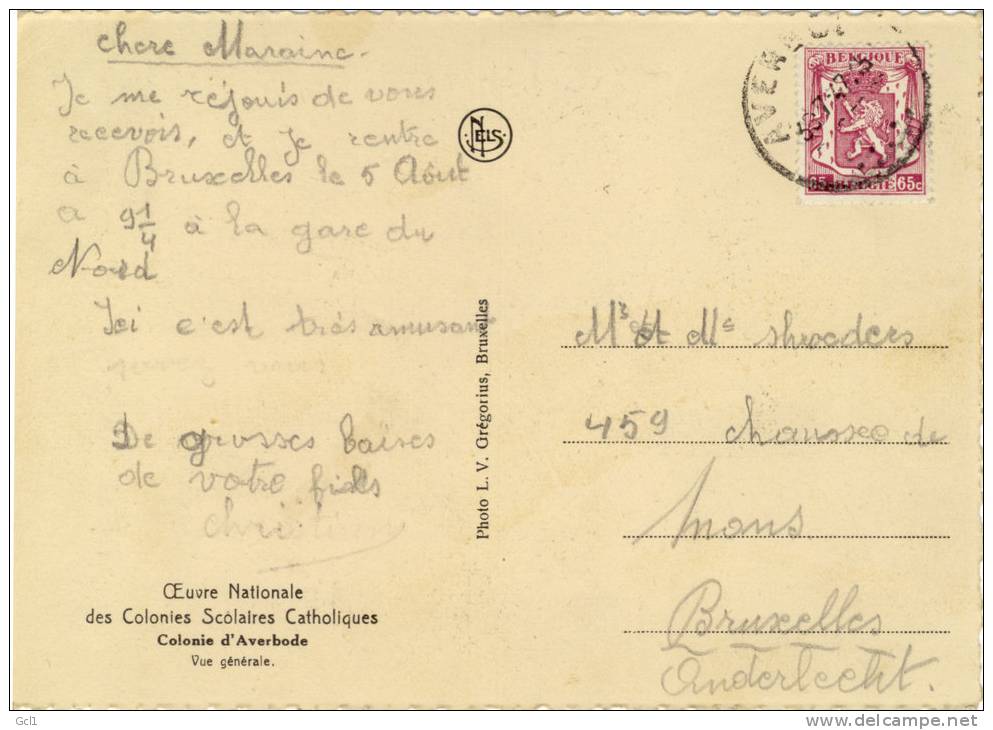 chere Maraine
Je me réjouis de vous
recevoir, et je rentre
à Bruxelles le 5 Aôut
a 9 1/4 à la gare du
Nord
Ici c'est très amusant
De grosses baises
de votre fiels
christian
Œuvre Nationale
des Colonies Scolaires Catholiques
Colonie d'Averbode
Vue générale.
NELS
Photo L. V. Grégorius, Bruxelles
BELGIQUE
65c BELGIË 65c
Mr et Me shroeders
459 chaussee de
mons
Bruxelles
Anderlecht.
Gcl1
delcampe.net